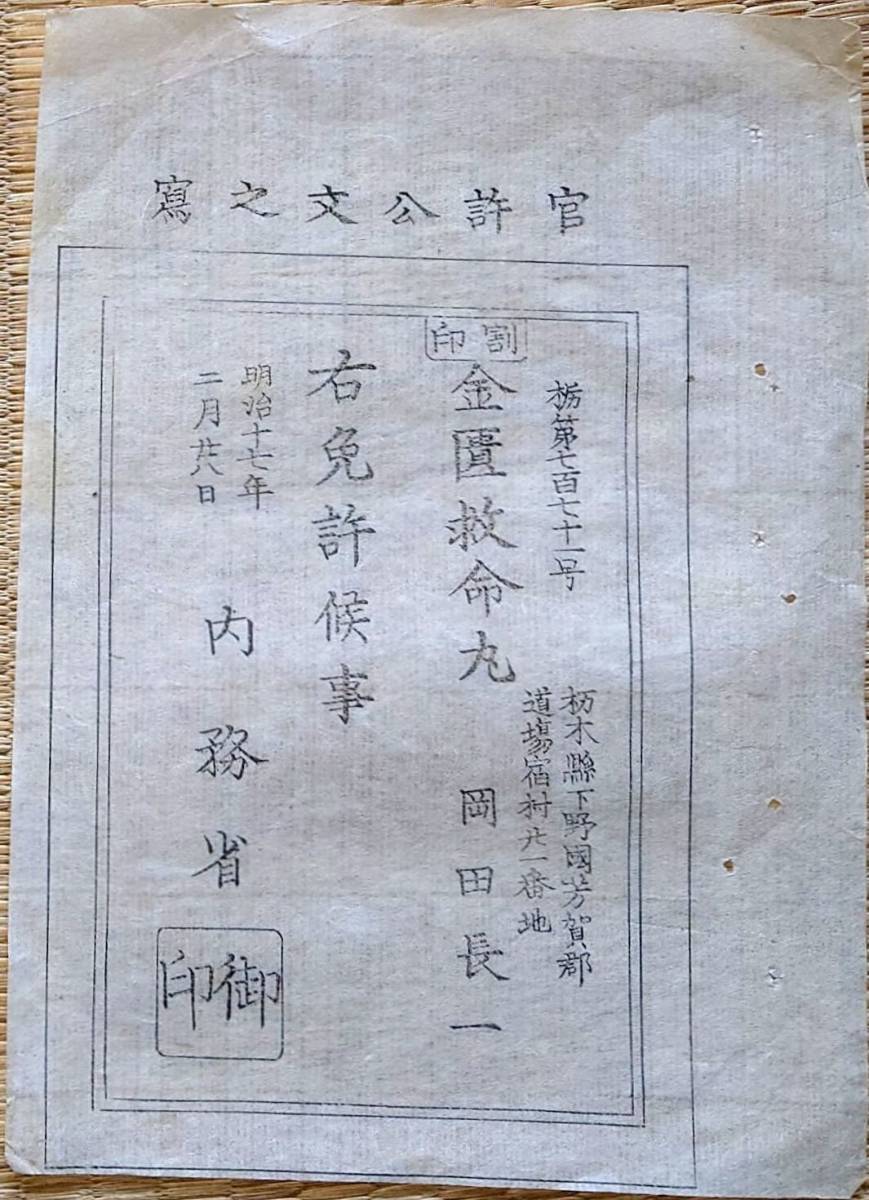 官許公文之寫
栃第七百七十一号
割印
金匱救命丸
栃木縣下野國芳賀郡
道場宿村廿一番地
岡田長一
右免許候事
明治十七年
二月廿八日
内務省
御印